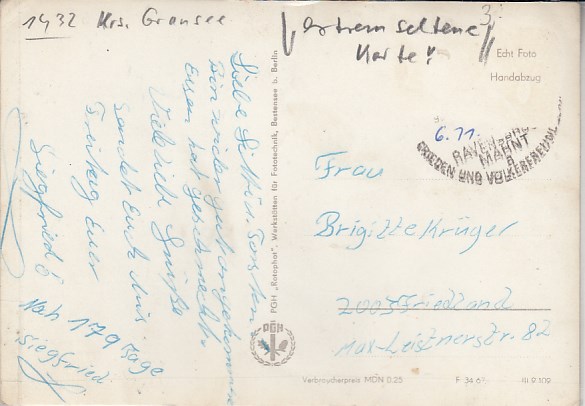 1432 Krs. Gransee
extrem seltene
Karte!
Echt Foto
Handabzug
Liebe Gitti u. Torsten
Bin wieder gut angekommen
Essen hat geschmeckt.
Viele liebe Grüße
sendet Euch aus
Euer
Siegfried
Noch 179 Tage
Siegfried
PGH „Rotophot“, Werkstätten für Fototechnik, Bestensee b. Berlin
PGH
6.11.
RAVENSBRÜ
MAHNT
FRIEDEN UND VÖLKERFREUN
Frau
Brigitte Krüger
Friedland
Max-Leistnerstr. 82
Verbraucherpreis MDN 0.25
F 34 6
III 9 109